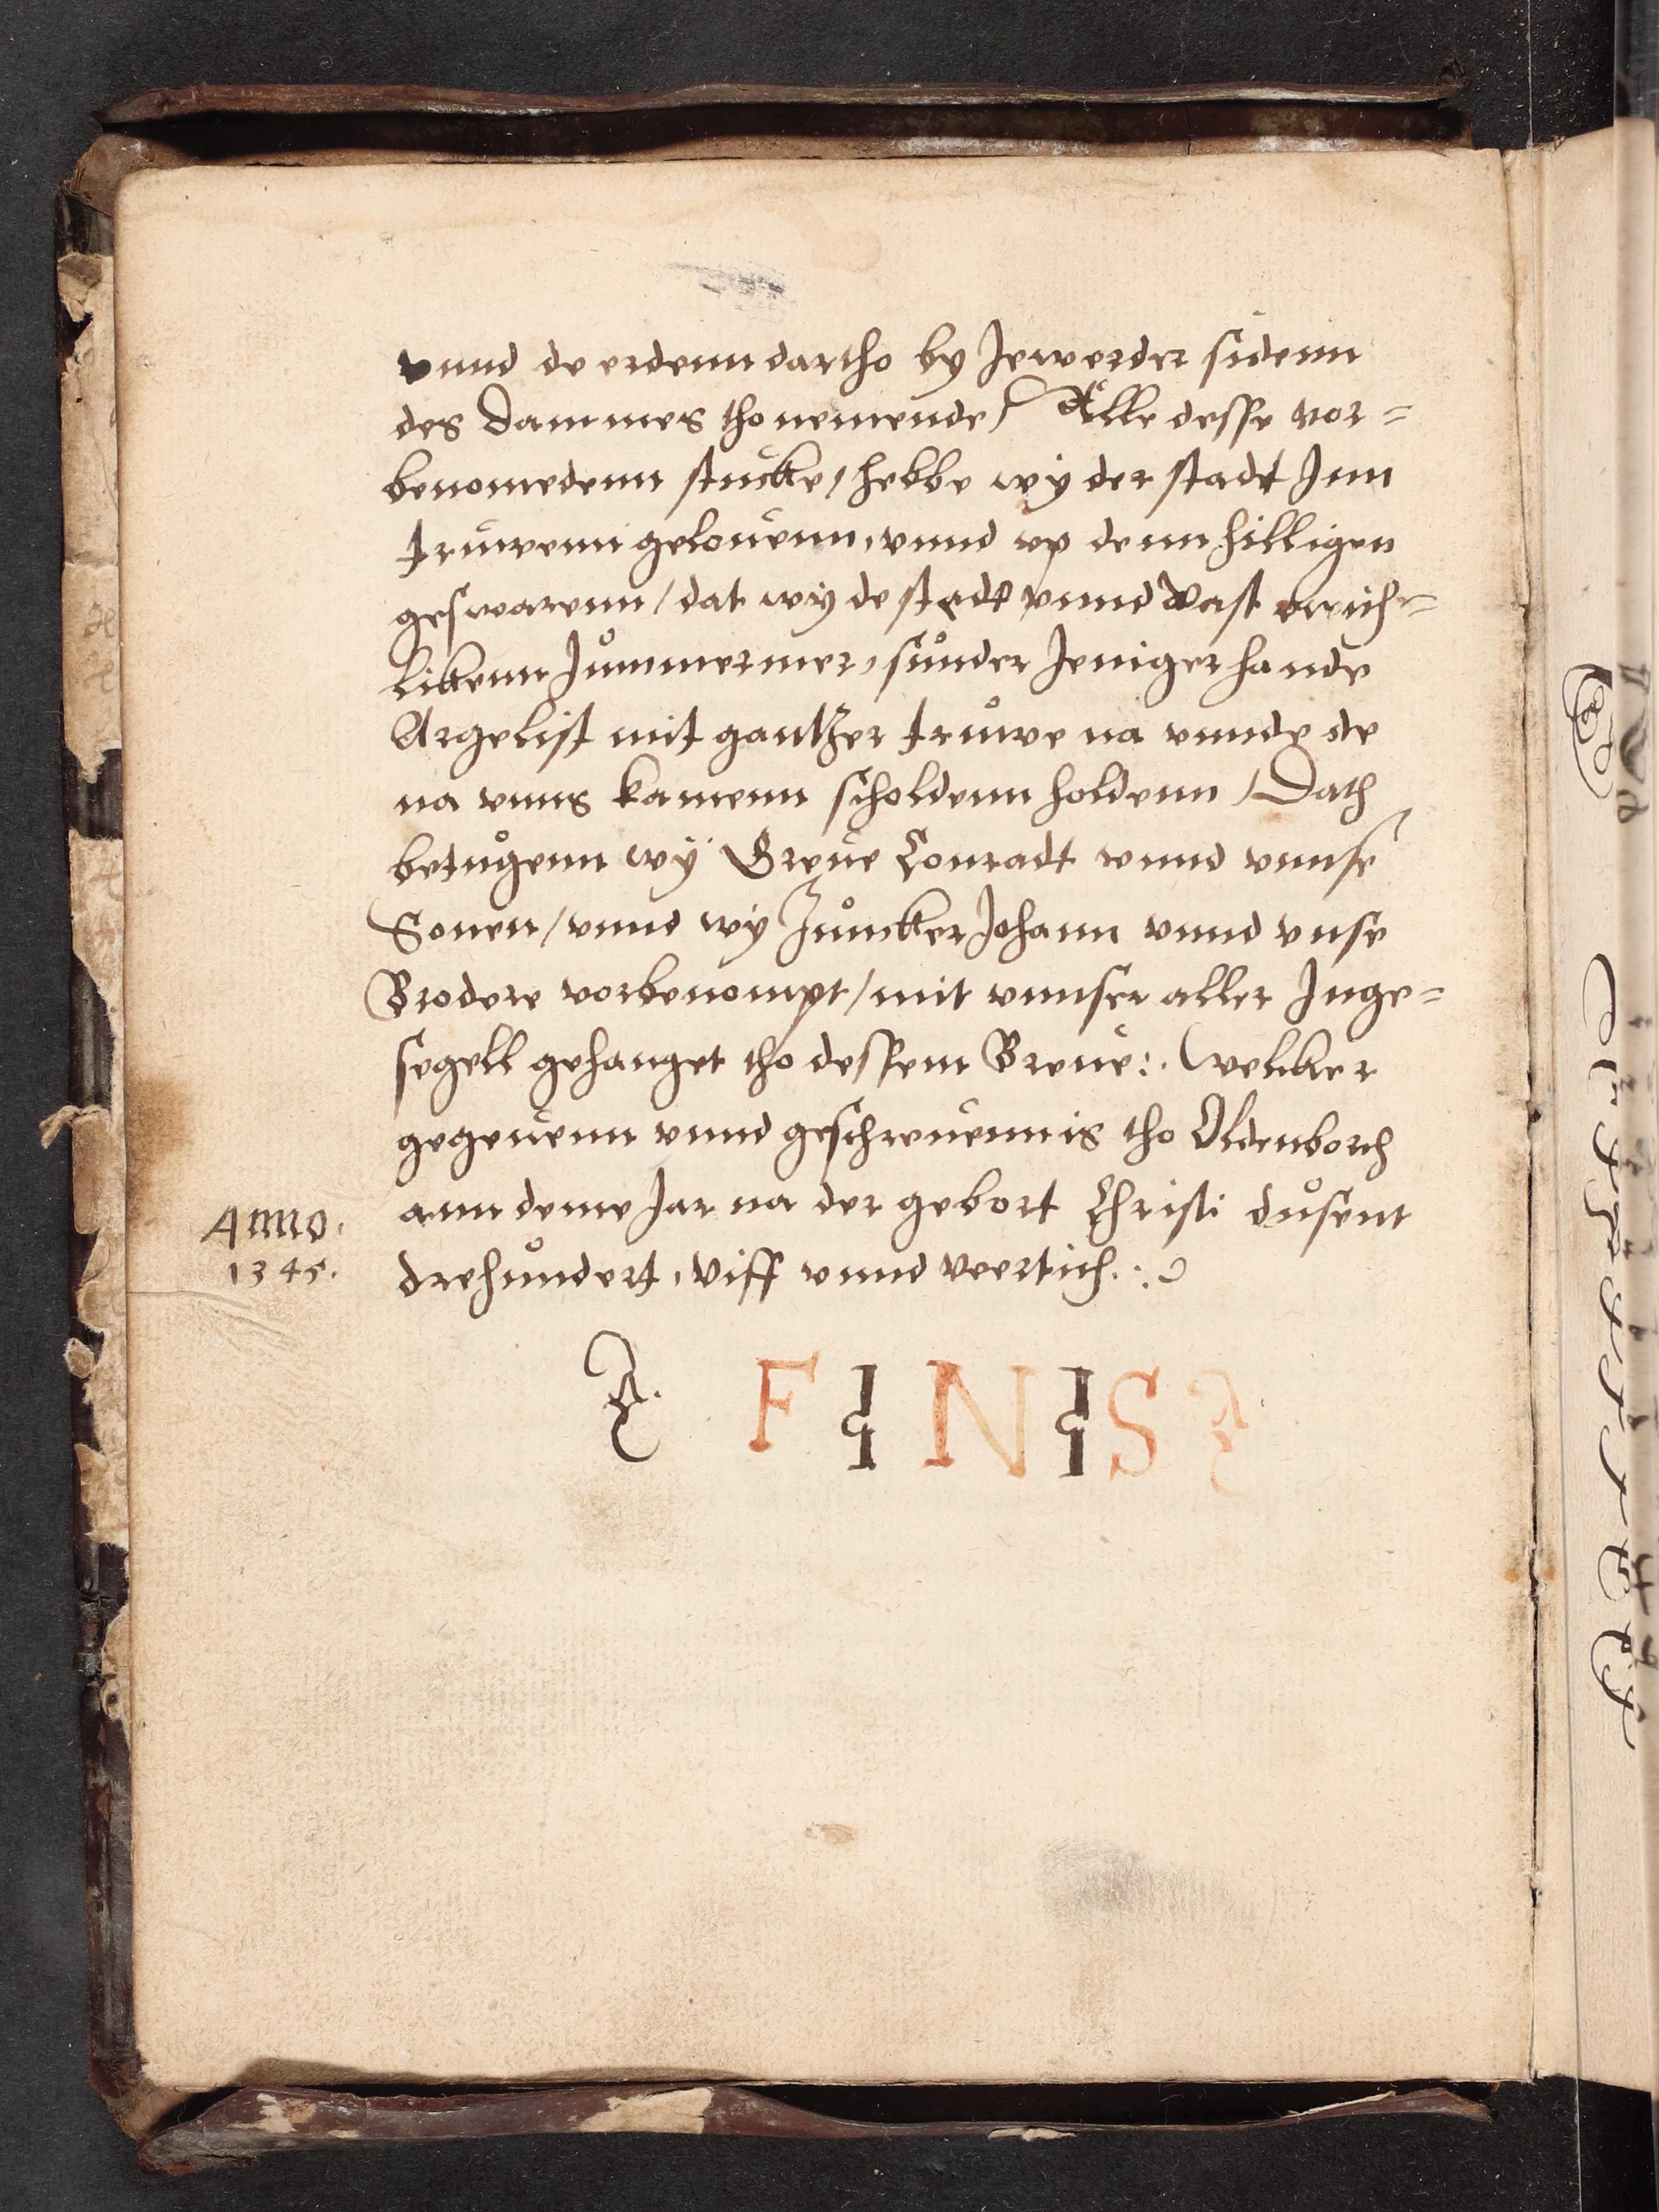 vnnd de erdenn dartho by Jewerder sidenn
des Dammes tho nemende / Alle desse vor=
benomedenn stucke / hebbe wÿ der stadt Inn
truwenn gelouenn, vnnd vp denn hilligen
geswarenn / dat wÿ de stede vnnd vast ewich=
likenn Jůmmermer, sůnder Jeniger hande
Argelist mit gantzer trůwe na vnnde de
na vnns kamenn scholdenn holdenn / Dath
betůgenn wÿ Greue Conradt vnnd vnnse
Sonen / vnnd wÿ Jůncker Johann vnnd vnse
Brodere vorbenompt / mit vnnser aller Inge=
segell gehanget tho dessem Breue :. Welcker
gegeuenn vnnd geschreuenn is tho Oldenborch
ann deme Jar na der gebort Christi důsent
drehůndert, viff vnnd veertich. :
Anno.
1345.
FINIS